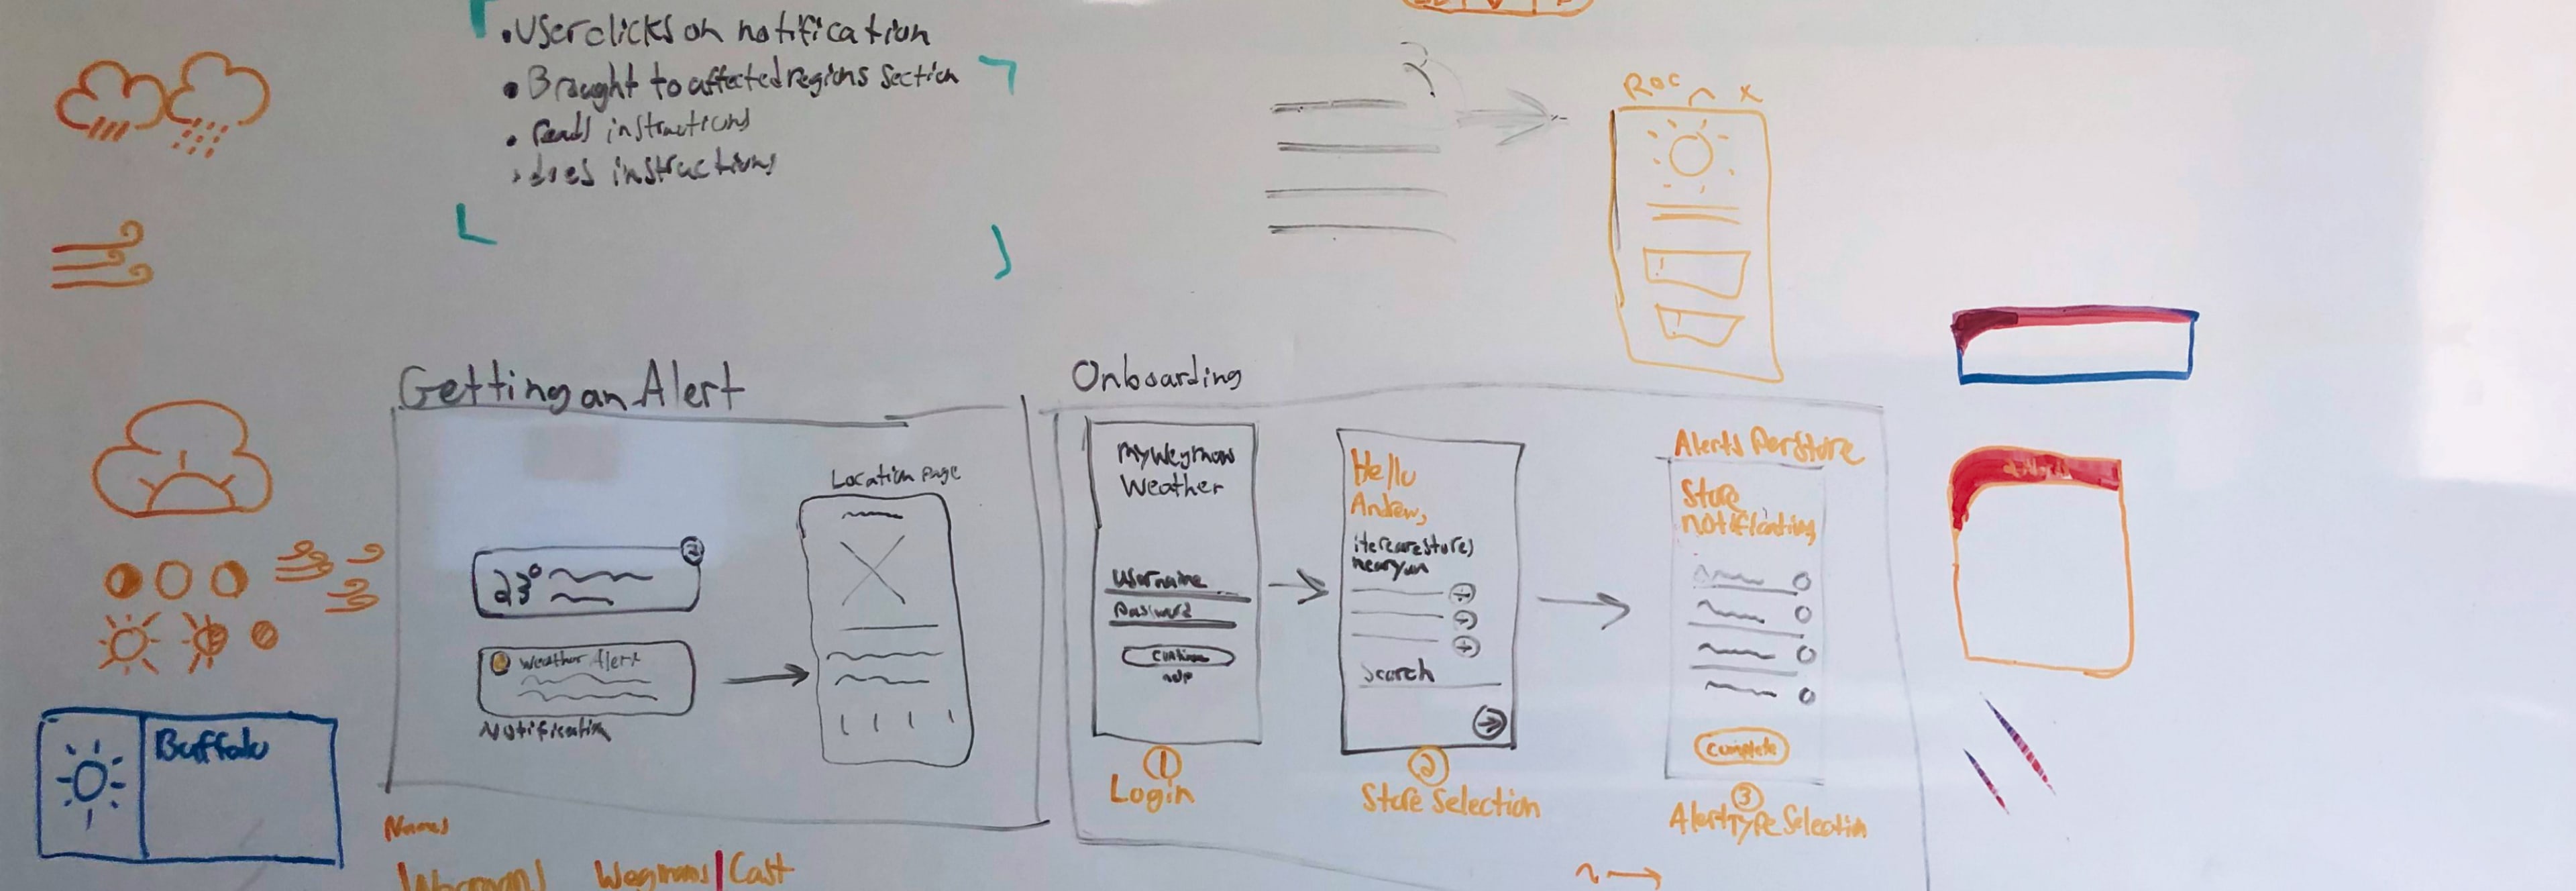 •User clicks on notification
• Brought to affected regions section
• Reads instructions
• does instructions
ROC
x
Getting an Alert
Location page
23°
2
Weather Alert
Notification
Onboarding
MyWegmans
Weather
Username
Password
Continue
help
1
Login
Hello
Andrew,
here are stores
near you
+
+
+
Search
2
Store Selection
Alerts Per Store
Store
notifications
Complete
3
Alert Type Selection
Buffalo
Names
Wegmans | Cast